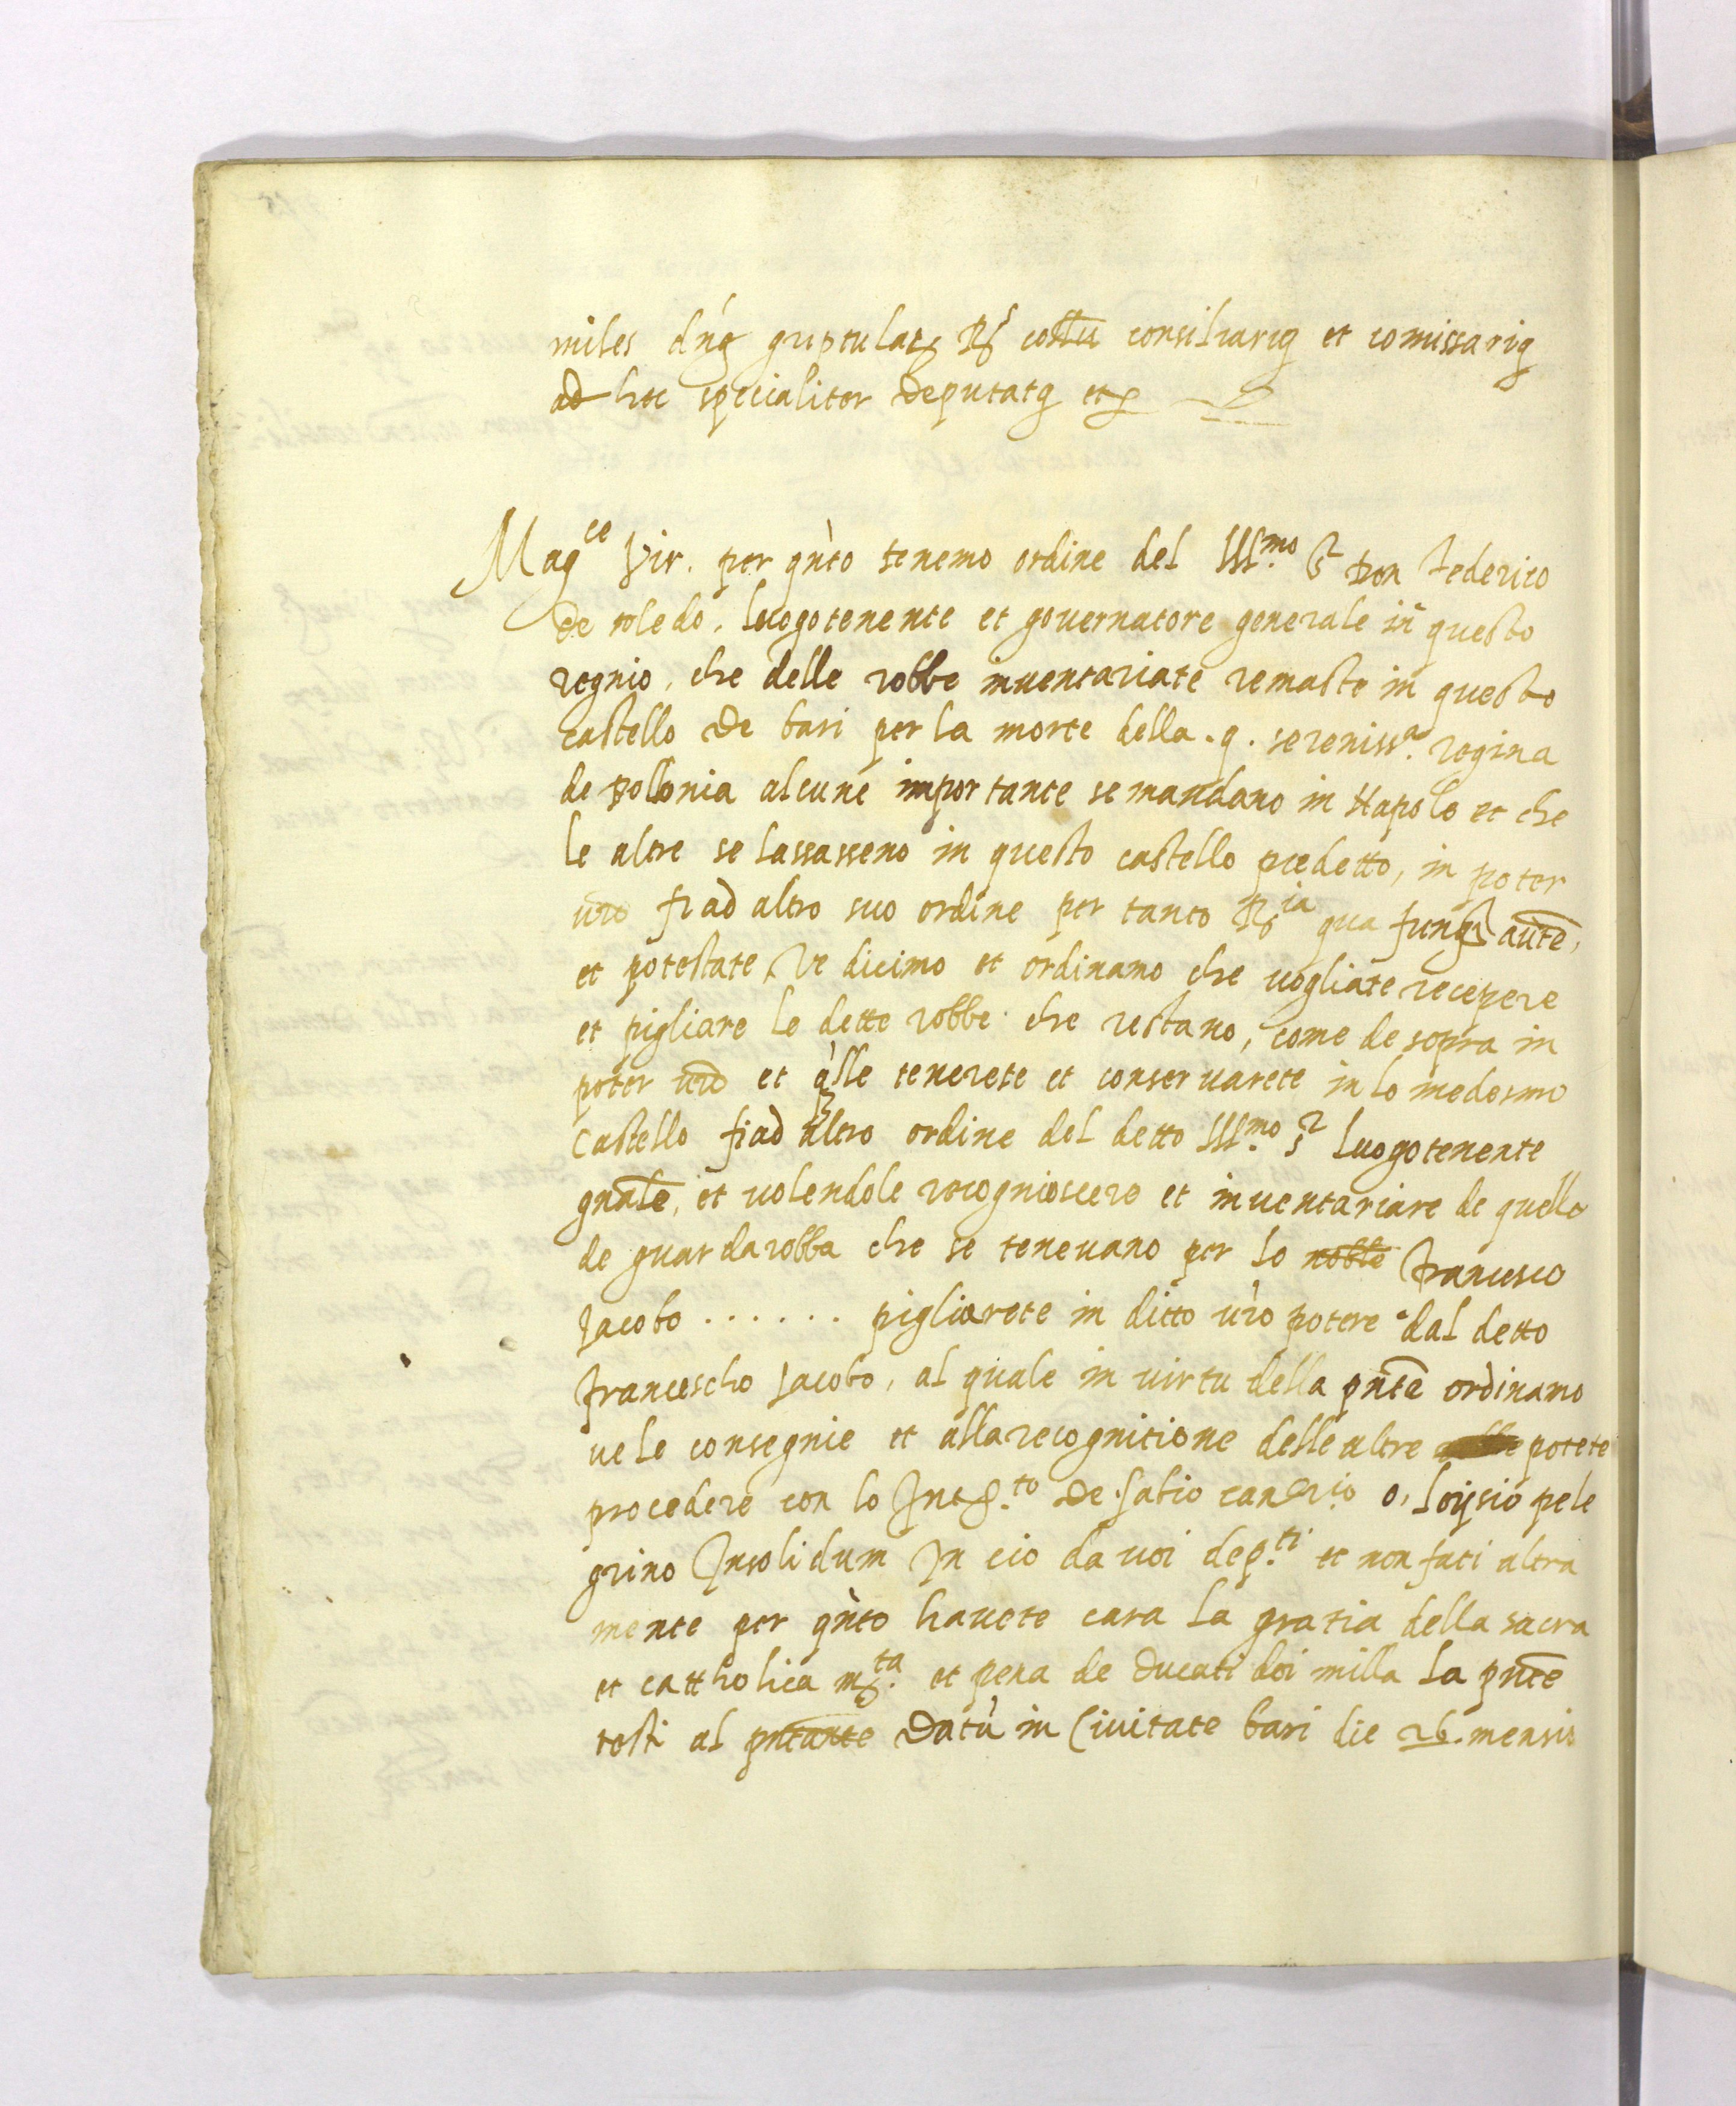 miles dns Reg. consiliarius et comissarius
ad hoc specialiter deputatus etc
Magce vir. per qnto tenemo ordine del Illmo Sr don federico
de toledo, luogotenente et governatore generale in questo
regnio, che delle robbe inventariate remaste in questo
castello de bari per la morte della .q. serenissa. regina
de pollonia alcune importante se mandano in Napole et che
le altre se lassasseno in questo castello predetto, in poter
vro fi ad altro suo ordine per tanto Ria qua fung. aute,
et potestate ve dicimo et ordinamo che vogliate recepere
et pigliare le dette robbe che restano, come de sopra in
poter vro et qlle tenerete et conservarete in lo medesmo
Castello fi ad altro ordine del detto Illmo. Sr luogotenente
gnale, et volendole recognioscere et inventariare de quelle
de guardarobba che se tenevano per lo noble francesco
Jacobo . . . . . . pigliarete in ditto vro potere dal detto
francescho Jacobo, al quale in virtu della pnte ordinamo
ve le consegnie et alla recognitione delle altre potete
procedere con lo de fabio o, loysio pele
grino Insolidum In cio da voi depti. et non fati altra
mente per qnto havete cara la gratia della sacra
et cattholica mta. et pena de ducati doi milla la pnte
resti al pntante Datu in Civitate bari die 26. mensis